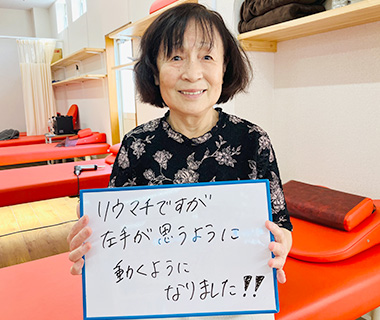 リウマチですが
左手が思うように
動くように
なりました!!